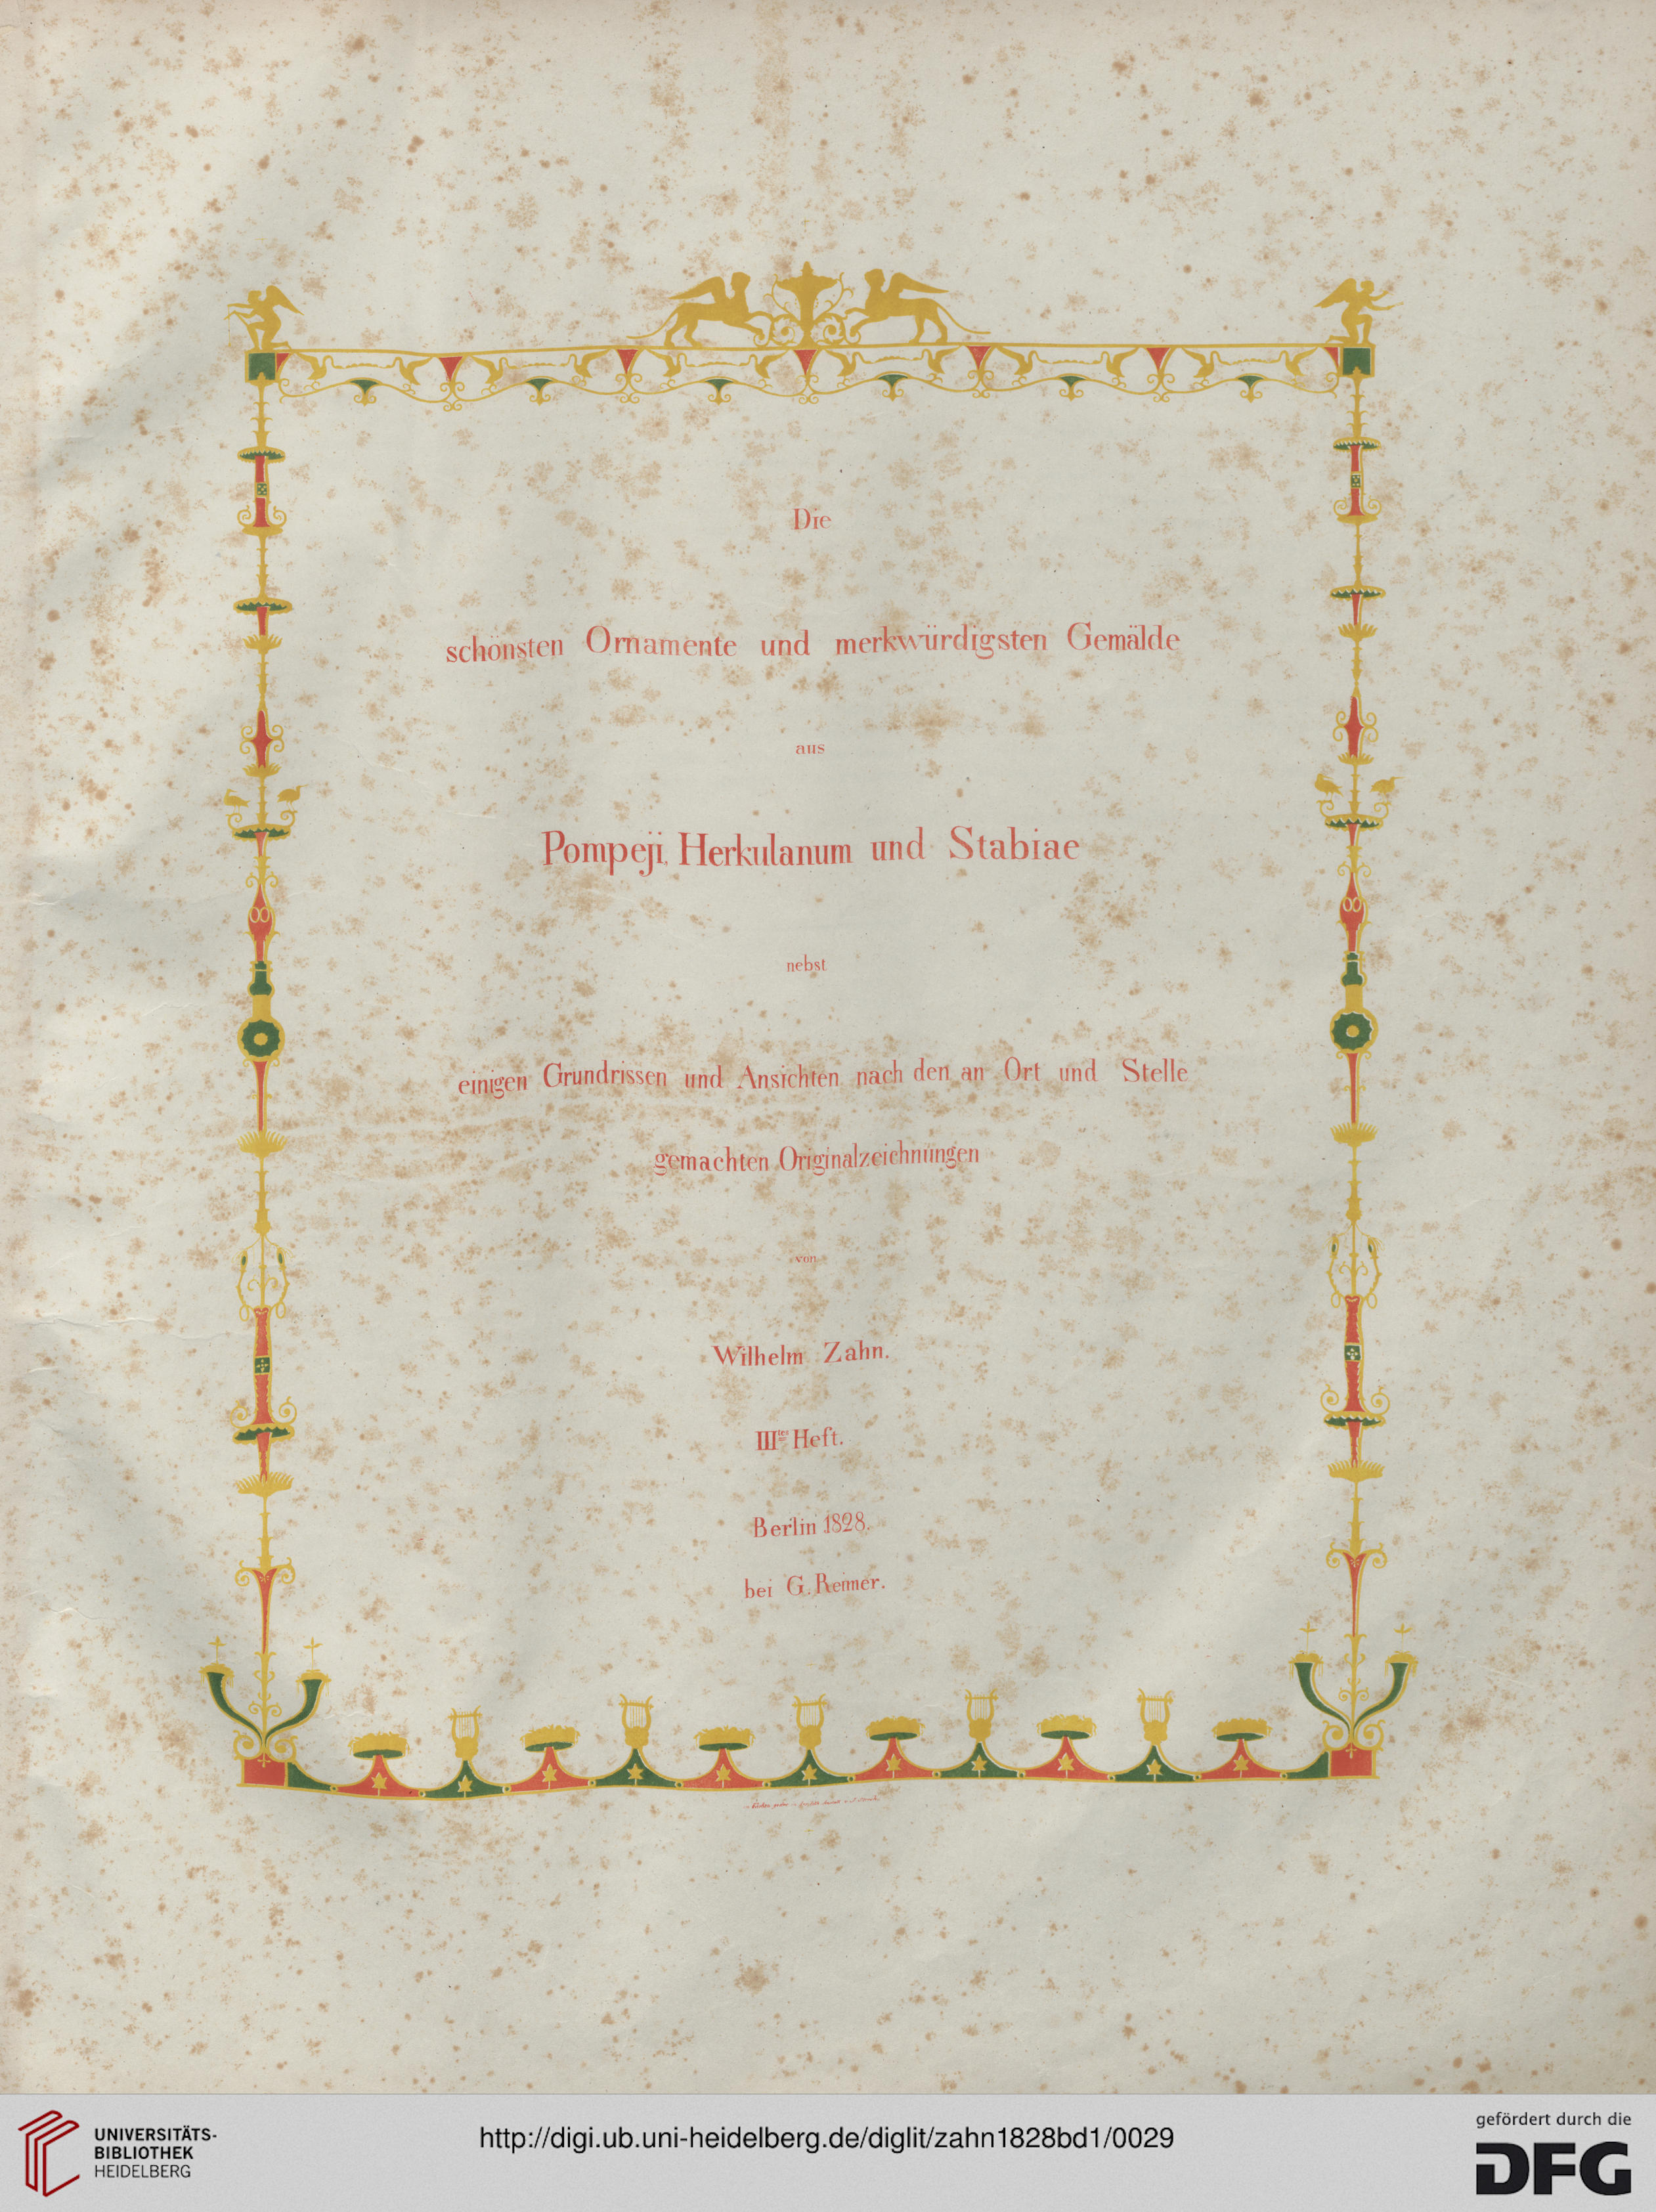 Die
schönsten Ornamente und merkwürdigsten Gemälde
aus
Pompeji, Herkulanum und Stabiae
nebst
einigen Grundrissen und Ansichten nach den an Ort und Stelle
gemachten Originalzeichnungen
von
Wilhelm Zahn.
III tes Heft.
Berlin 1828.
bei G. Reimer.
UNIVERSITÄTS-
BIBLIOTHEK
HEIDELBERG
http://digi.ub.uni-heidelberg.de/diglit/zahn1828bd1/0029
gefördert durch die
DFG